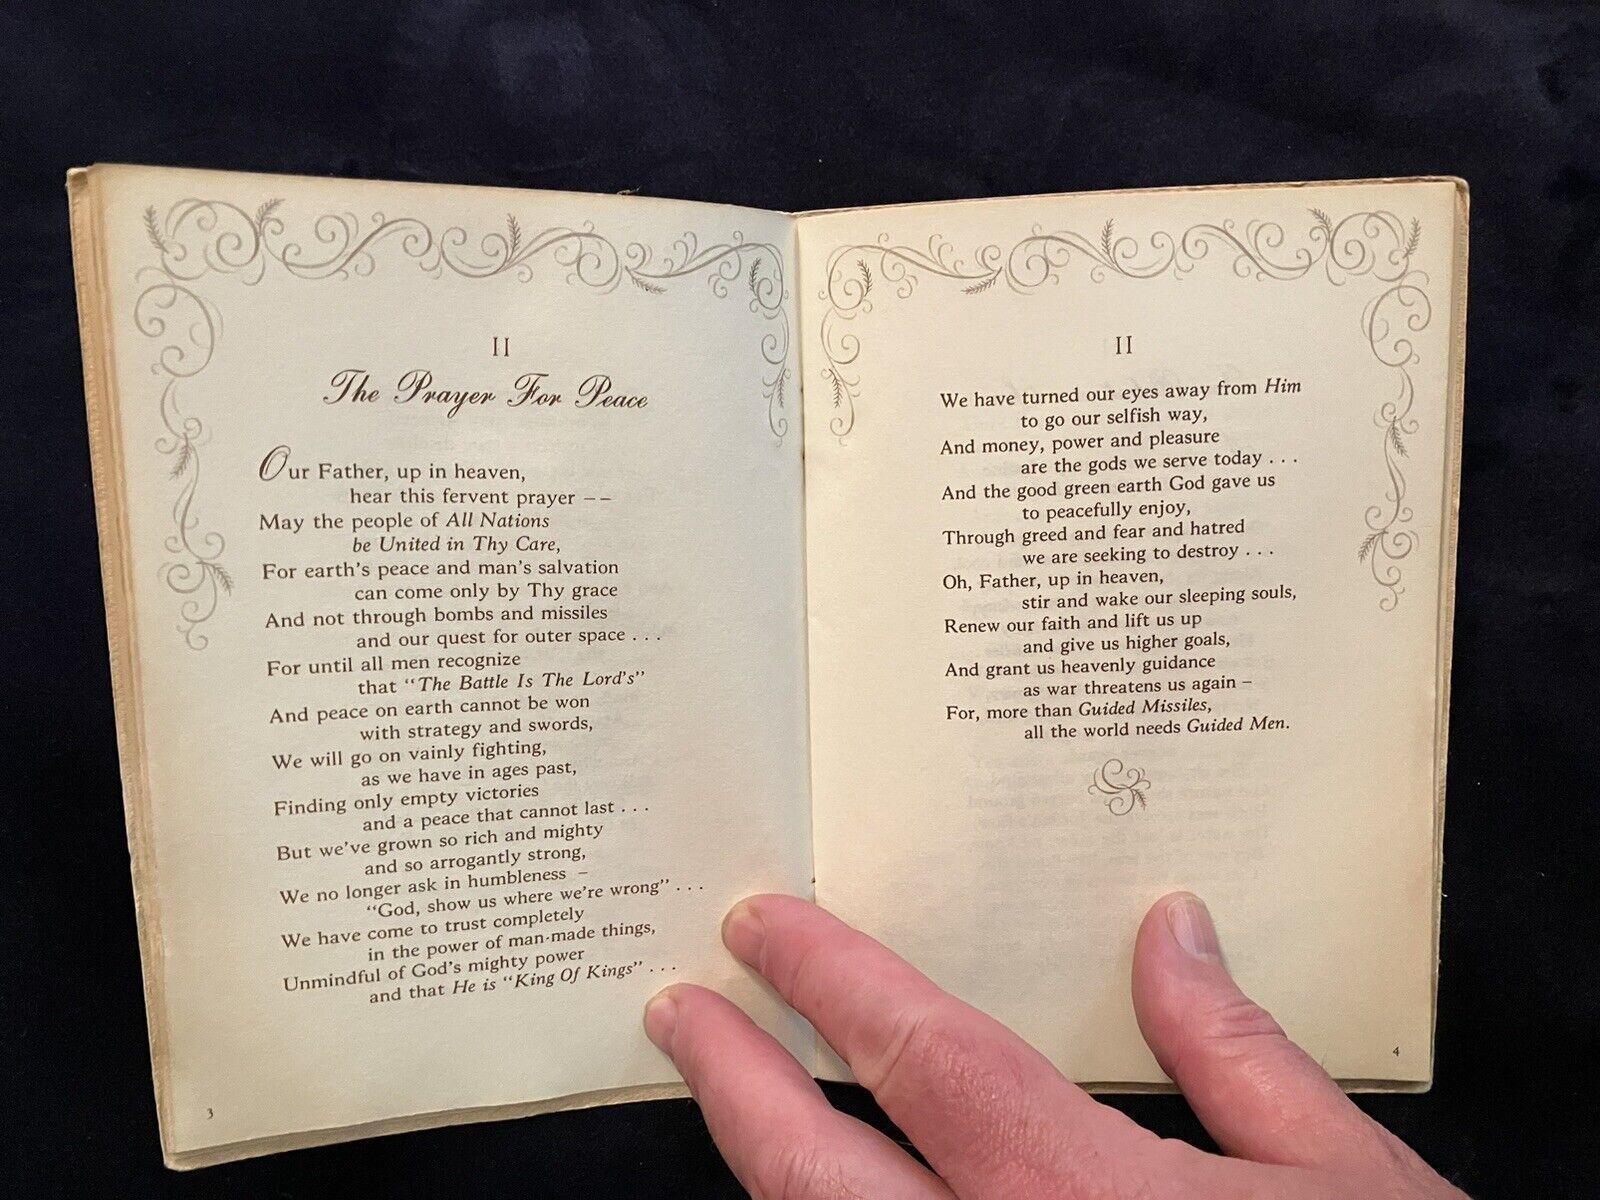 II
The Prayer For Peace
Our Father, up in heaven,
hear this fervent prayer – –
May the people of All Nations
be United in Thy Care,
For earth's peace and man's salvation
can come only by Thy grace
And not through bombs and missiles
and our quest for outer space . . .
For until all men recognize
that "The Battle Is The Lord's"
And peace on earth cannot be won
with strategy and swords,
We will go on vainly fighting,
as we have in ages past,
Finding only empty victories
and a peace that cannot last . . .
But we've grown so rich and mighty
and so arrogantly strong,
We no longer ask in humbleness –
"God, show us where we're wrong" . . .
We have come to trust completely
in the power of man-made things,
Unmindful of God's mighty power
and that He is "King Of Kings" . . .
3
II
We have turned our eyes away from Him
to go our selfish way,
And money, power and pleasure
are the gods we serve today . . .
And the good green earth God gave us
to peacefully enjoy,
Through greed and fear and hatred
we are seeking to destroy . . .
Oh, Father, up in heaven,
stir and wake our sleeping souls,
Renew our faith and lift us up
and give us higher goals,
And grant us heavenly guidance
as war threatens us again –
For, more than Guided Missiles,
all the world needs Guided Men.
4